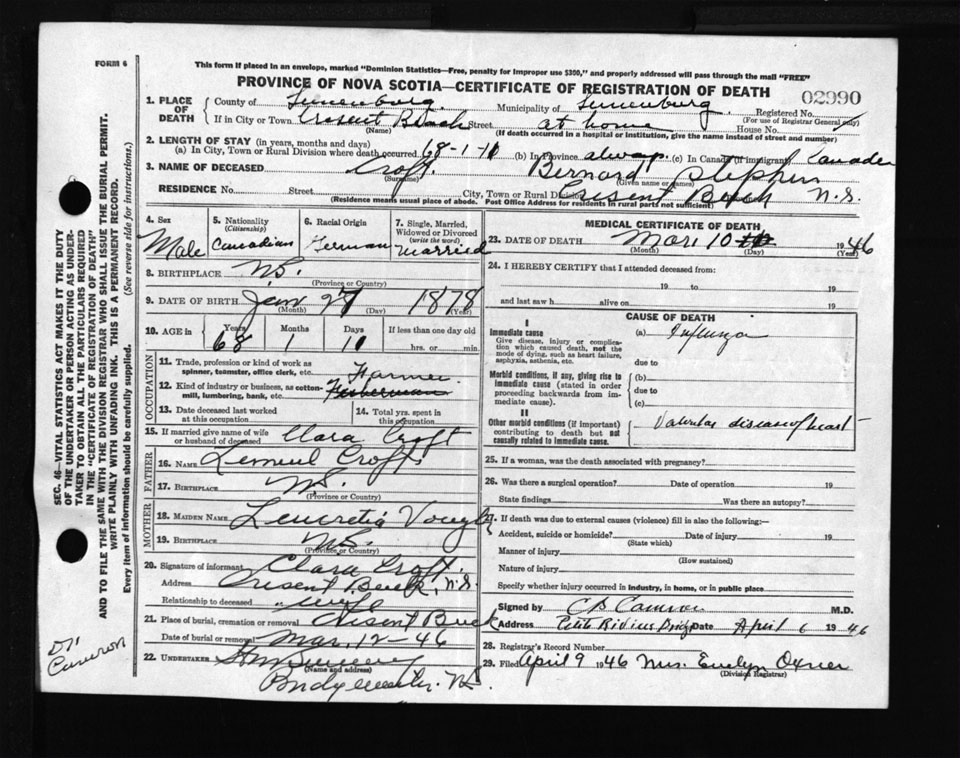 FORM 6
This form if placed in an envelope, marked "Dominion Statistics—Free, penalty for improper use $300," and properly addressed will pass through the mail "FREE"
PROVINCE OF NOVA SCOTIA—CERTIFICATE OF REGISTRATION OF DEATH
02990
1. PLACE OF DEATH
County of Lunenburg Municipality of Lunenburg Registered No.
(For use of Registrar General only)
If in City or Town Cresent Beach Street at home House No.
(Name) (If death occurred in a hospital or institution, give the name instead of street and number)
2. LENGTH OF STAY (in years, months and days)
(a) In City, Town or Rural Division where death occurred 68-1-11 (b) In Province always (c) In Canada if immigrant Canada
3. NAME OF DECEASED Croft Bernard Stephen
(Surname) (Given name or names)
RESIDENCE No. Street City, Town or Rural Division Cresent Beach N.S.
(Residence means usual place of abode. Post Office Address for residents in rural parts not sufficient)
4. Sex Male
5. Nationality (Citizenship) Canadian
6. Racial Origin German
7. Single, Married, Widowed or Divorced (write the word) Married
8. BIRTHPLACE N.S.
(Province or Country)
9. DATE OF BIRTH Jan 27 1878
(Month) (Day) (Year)
10. AGE in Years 68 Months 1 Days 11 If less than one day old hrs. or min.
OCCUPATION
11. Trade, profession or kind of work as spinner, teamster, office clerk, etc. Farmer
12. Kind of industry or business, as cotton-mill, lumbering, bank, etc. Fisherman
13. Date deceased last worked at this occupation
14. Total yrs. spent in this occupation
15. If married give name of wife or husband of deceased Clara Croft
FATHER
16. Name Lemuel Croft
17. Birthplace N.S.
(Province or Country)
MOTHER
18. Maiden Name Leucretia
19. Birthplace N.S.
(Province or Country)
20. Signature of informant Clara Croft
Address Cresent Beach, N.S.
Relationship to deceased wife
21. Place of burial, cremation or removal Cresent Beach
Date of burial or removal Mar, 12-46
22. Undertaker
(Name and address)
Bridgewater, N.S.
MEDICAL CERTIFICATE OF DEATH
23. DATE OF DEATH Mar, 10 1946
(Month) (Day) (Year)
24. I HEREBY CERTIFY that I attended deceased from:
19 to 19
and last saw h alive on 19
CAUSE OF DEATH
I
Immediate cause
Give disease, injury or complication which caused death, not the mode of dying, such as heart failure, asphyxia, asthenia, etc.
(a) Influenza
due to
Morbid conditions, if any, giving rise to immediate cause (stated in order proceeding backwards from immediate cause).
(b)
due to
(c)
II
Other morbid conditions (if important) contributing to death but not causally related to immediate cause.
Valvular disease of heart
25. If a woman, was the death associated with pregnancy?
26. Was there a surgical operation? Date of operation 19
State findings Was there an autopsy?
27. If death was due to external causes (violence) fill in also the following:
Accident, suicide or homicide? Date of injury 19
(State which)
Manner of injury
(How sustained)
Nature of injury
Specify whether injury occurred in industry, in home, or in public place
Signed by C B Cameron M.D.
Address Petite Riviere Bridge Date April 6 1946
28. Registrar's Record Number
29. Filed April 9 1946 Mrs. Evelyn Oxner
(Division Registrar)
SEC. 46—VITAL STATISTICS ACT MAKES IT THE DUTY
OF THE UNDERTAKER OR PERSON ACTING AS UNDERTAKER TO OBTAIN ALL THE PARTICULARS REQUIRED
IN THE "CERTIFICATE OF REGISTRATION OF DEATH"
AND TO FILE THE SAME WITH THE DIVISION REGISTRAR WHO SHALL ISSUE THE BURIAL PERMIT.
WRITE PLAINLY WITH UNFADING INK. THIS IS A PERMANENT RECORD.
Every item of information should be carefully supplied. (See reverse side for instructions.)
Dr
Cameron